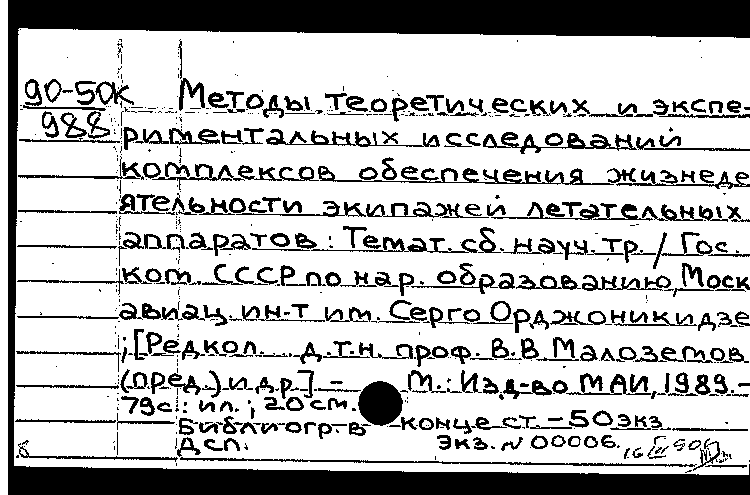 90-50К Методы теоретических и экспе-
988 риментальных исследований
комплексов обеспечения жизнеде
ятельности экипажей летательных
аппаратов: Темат. сб. науч. тр. / Гос.
ком. СССР по нар. образованию, Моск
авиац. ин-т им. Серго Орджоникидзе
; [Редкол. д.т.н. проф. В.В Малоземов
(пред.) и др.] - М.: Изд-во МАИ, 1989.-
79с.: ил.; 20 см.
Библиогр. в конце ст. - 50 экз
ДСП. Экз. N 00006.
8